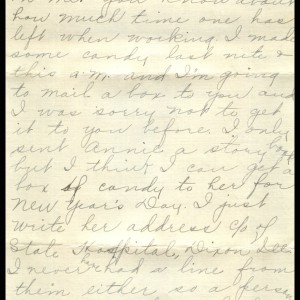 me. You know about
how much time one has
left when working. I made
some candy last nite &
this a.m. and I'm going
to mail a box to you and
I was sorry not to get
it to you before. I only
sent Annie a story
but I think I can get a
box of candy to her for
New Year's Day. I just
write her address c/o of
State Hospital, Dixon Ill.
I never had a line from
them either so a